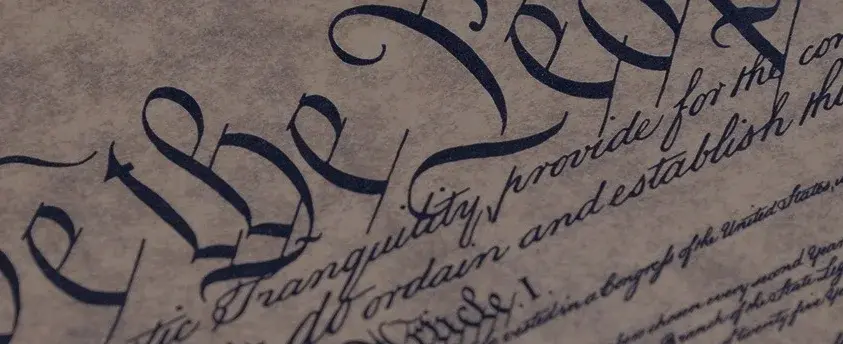 e the Peop
tic Tranquility, provide for the com
do ordain and establish thi
Article. I.
vested in a Congreſs of the United States,
chosen every second Year
Branch of the State Leg
twenty five Y